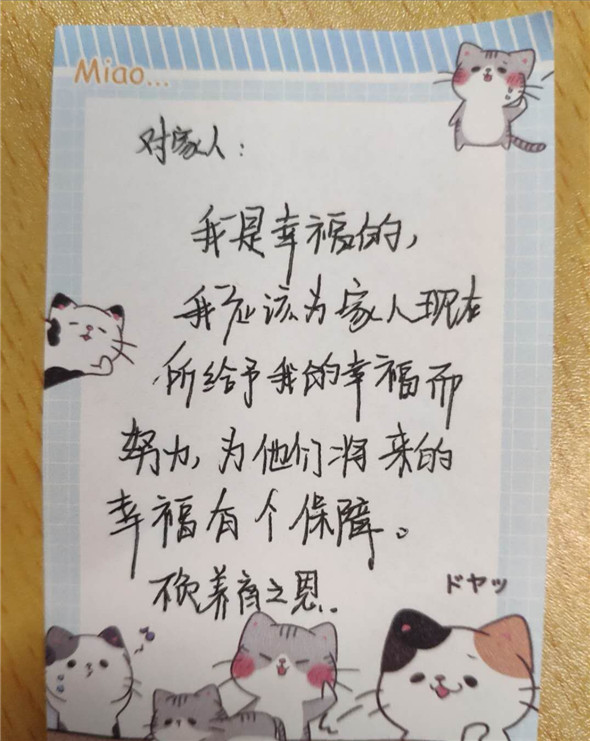 Miao...
对家人：
我是幸福的，
我应该为家人现在
所给予我的幸福而
努力，为他们将来的
幸福有个保障。
不负养育之恩..
ドヤッ